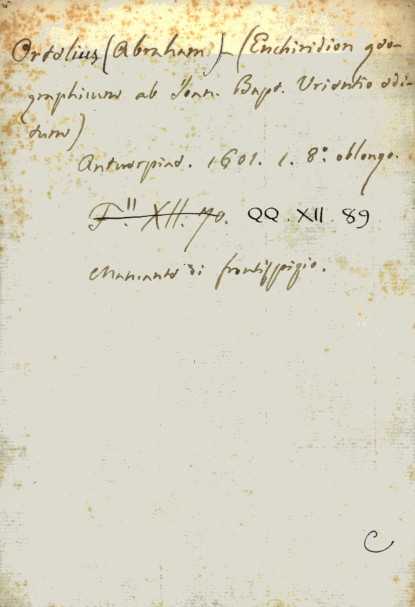 Ortelius (Abraham) - (Enchiridion geo-
graphicum ab Joan. Bapt. Vrientio edi-
tum)
Antuerpiae. 1601. 1. 8.° oblongo.
F.II XII. 70. QQ. XII. 89
Mancante di frontispizio.
C